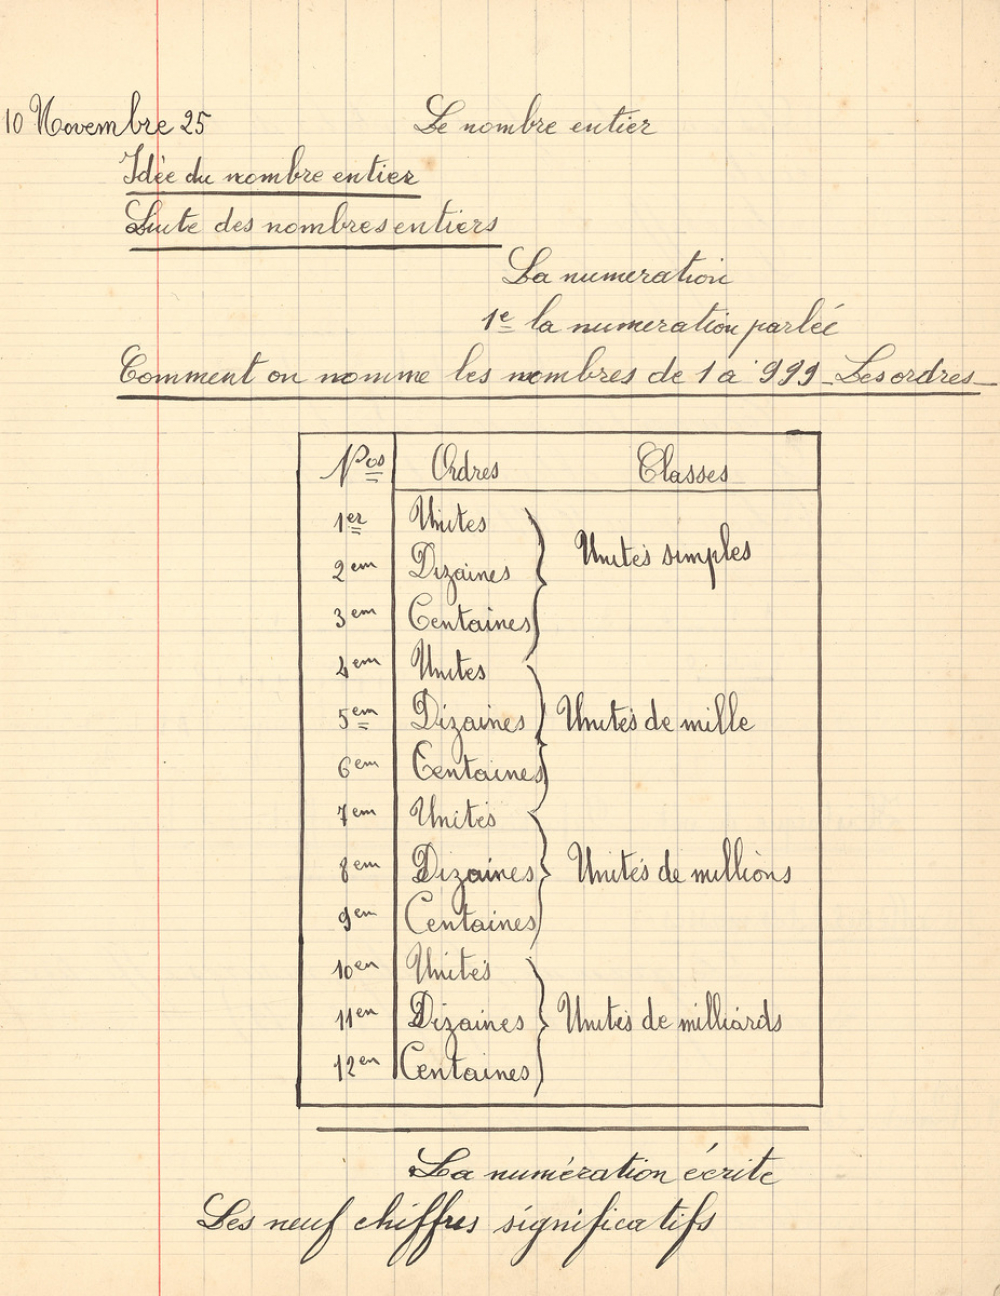 10 Novembre 25 Le nombre entier
Idée du nombre entier
Suite des nombres entiers
La numeration
1e la numeration parlée
Comment on nomme les nombres de 1 à 999 - Les ordres -
Nos Ordres Classes
1er Unites
Unités simples
2em Dizaines
3em Centaines
4em Unites
5em Dizaines Unités de mille
6em Centaines
7em Unités
8em Dizaines Unités de millions
9em Centaines
10en Unités
11en Dizaines Unités de milliards
12en Centaines
La numération écrite
Les neuf chiffres significatifs